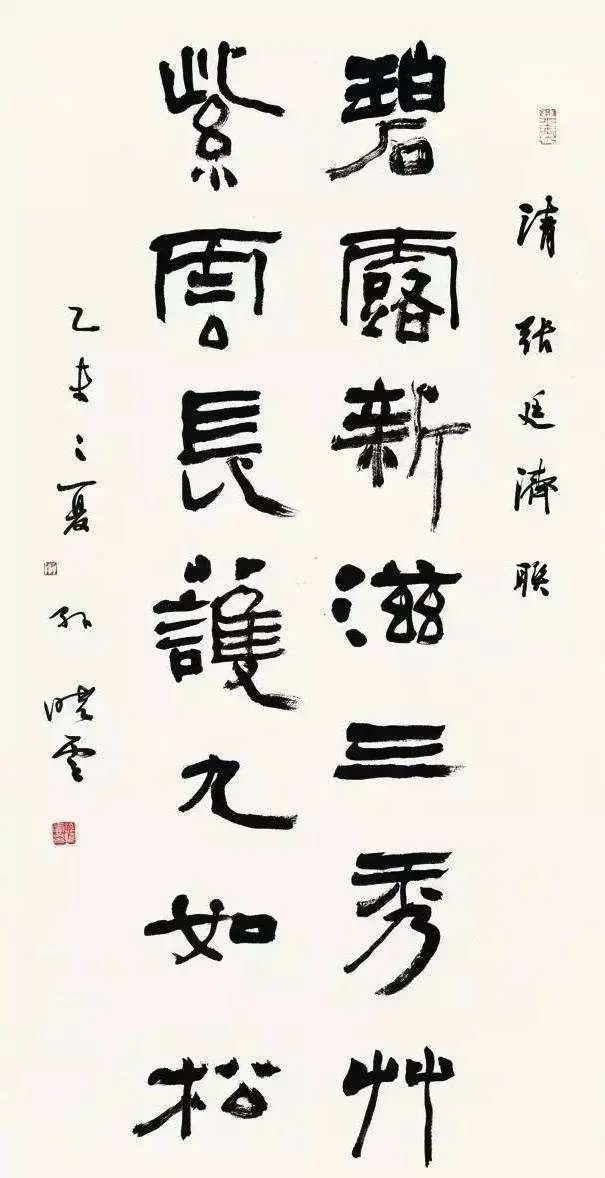 清張廷濟聯
碧露新滋三秀艸
紫雲長護九如松
乙未之夏 孙晓雲